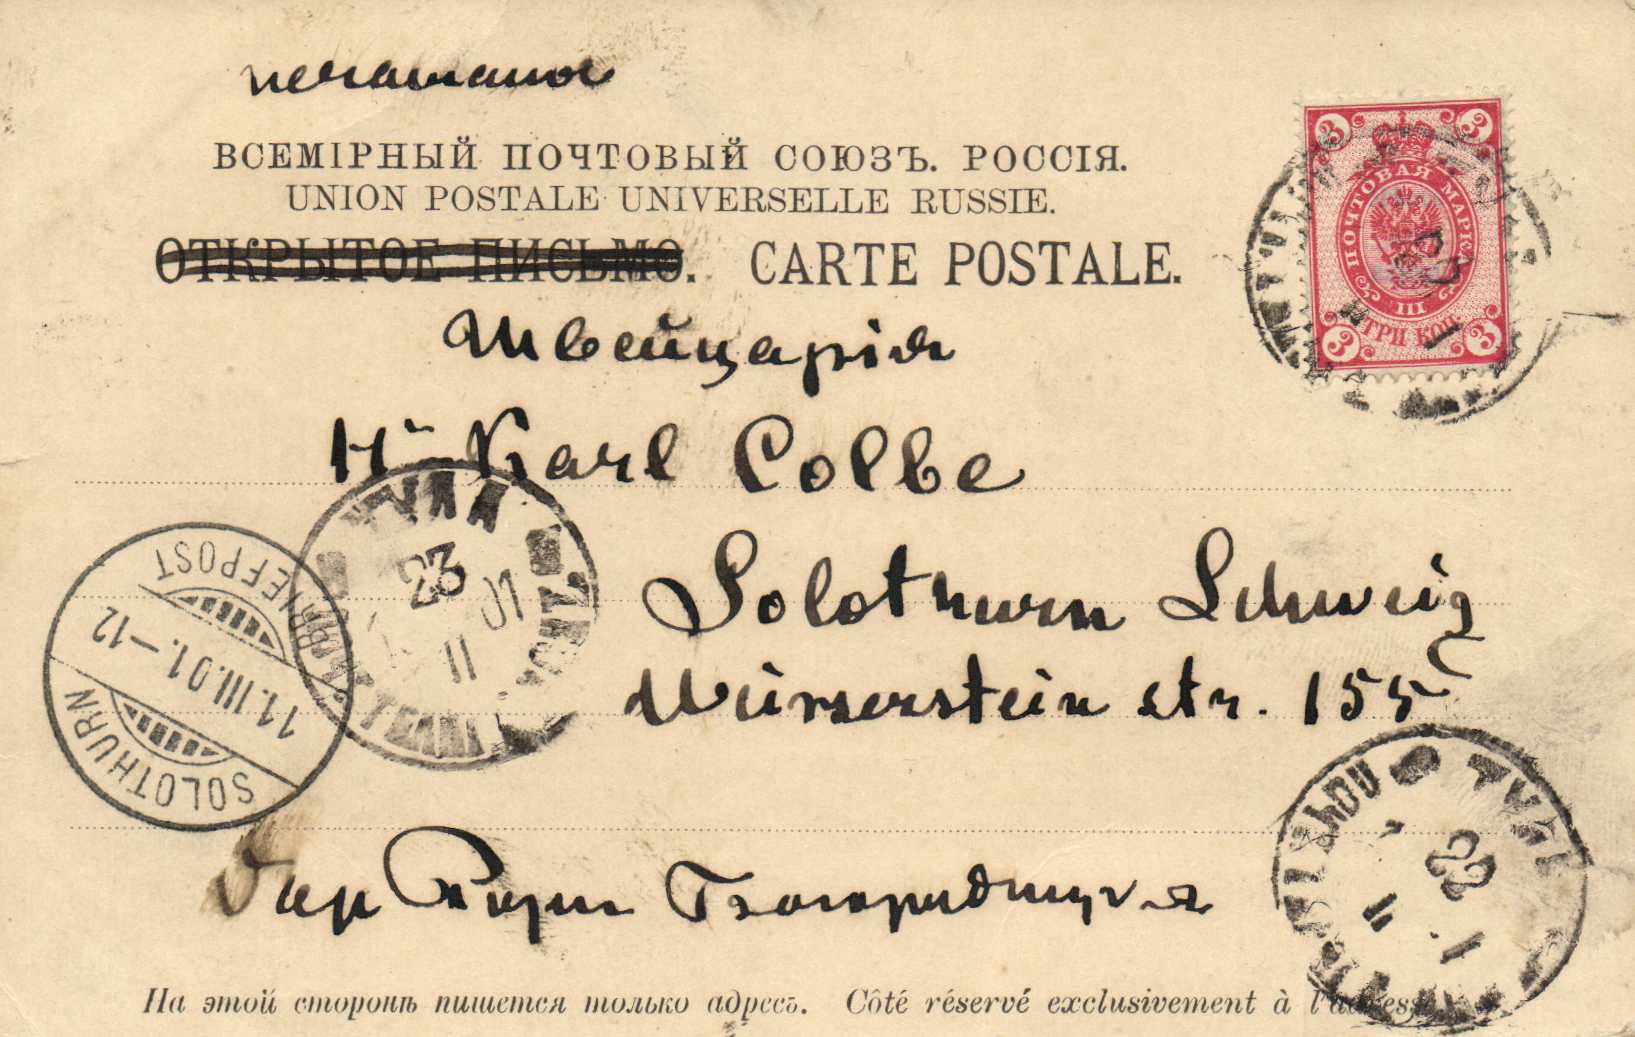 печатаное
ВСЕМІРНЫЙ ПОЧТОВЫЙ СОЮЗЪ. РОССІЯ.
UNION POSTALE UNIVERSELLE RUSSIE.
ОТКРЫТОЕ ПИСЬМО. CARTE POSTALE.
3 3
ПОЧТОВАЯ МАРКА
III
ТРИ КОП.
3 3
Швейцарія
Hrn Karl Colbe
Solothurn Schweiz
str. 155
SOLOTHURN
11.III.01.-12
BRIEFPOST
23
II
01
ТУЛА
На этой сторонѣ пишется только адресъ. Côté réservé exclusivement à l'adresse